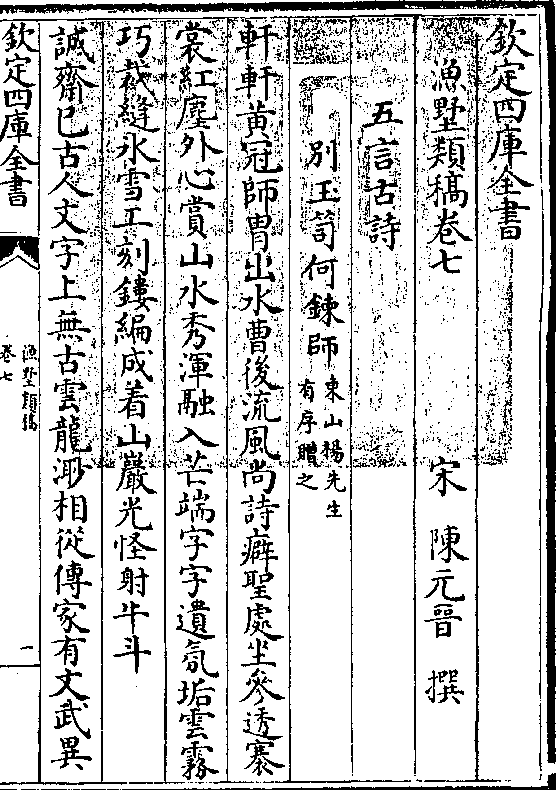 欽定四庫全書
漁墅類稿卷七
宋 陳元晉 撰
五言古詩
別玉笥何鍊師東山楊先生有序贈之
軒軒黃冠師胄出水曹後流風尚詩癖聖處坐參透褰
裳紅塵外心賞山水秀渾融入芒端字字遺氛垢雲霧
巧裁縫氷雪工刻鏤編成着山巖光怪射牛斗
誠齋已古人文字上無古雲龍渺相從傳家有文武異
欽定四庫全書
漁墅類稿
卷七
一